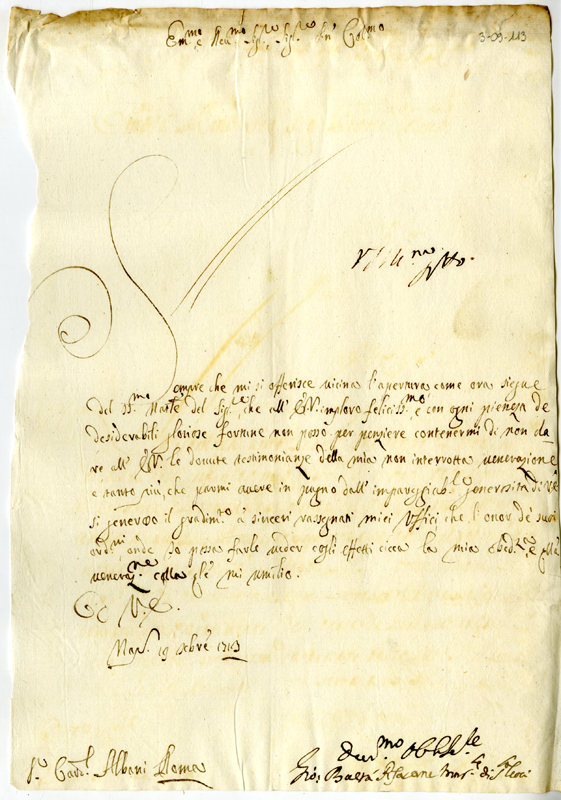 Em.mo e Rev.mo Sig.re Sig.re Col.mo
3-09-113
Sempre che mi si offerisce vicina l'apertura come ora siegue
del SS.mo Natale del Sig.re che all' E.V. imploro feliciss.mo e con ogni pienezza de
desiderabili gloriose fortune non posso per pensiere contenermi di non da
re all' E.V. le dovute testimonianze della mia non interrotta venerazione
e tanto più, che parmi avere in pugno dall' impareggiab.le generosità di V.E.
si generoso il gradim.to a sinceri rassegnati miei Uffici che l'onor de' suoi
ord.ni onde io possa farle veder cogli effetti circa la mia obed.za e
veneraz.ne colla mi umilio.
Di V.E.
Nap. 19 Xbre 1713
S.r Card.l Albani Roma
Dev.mo Obbl.
Gio: Batt.a